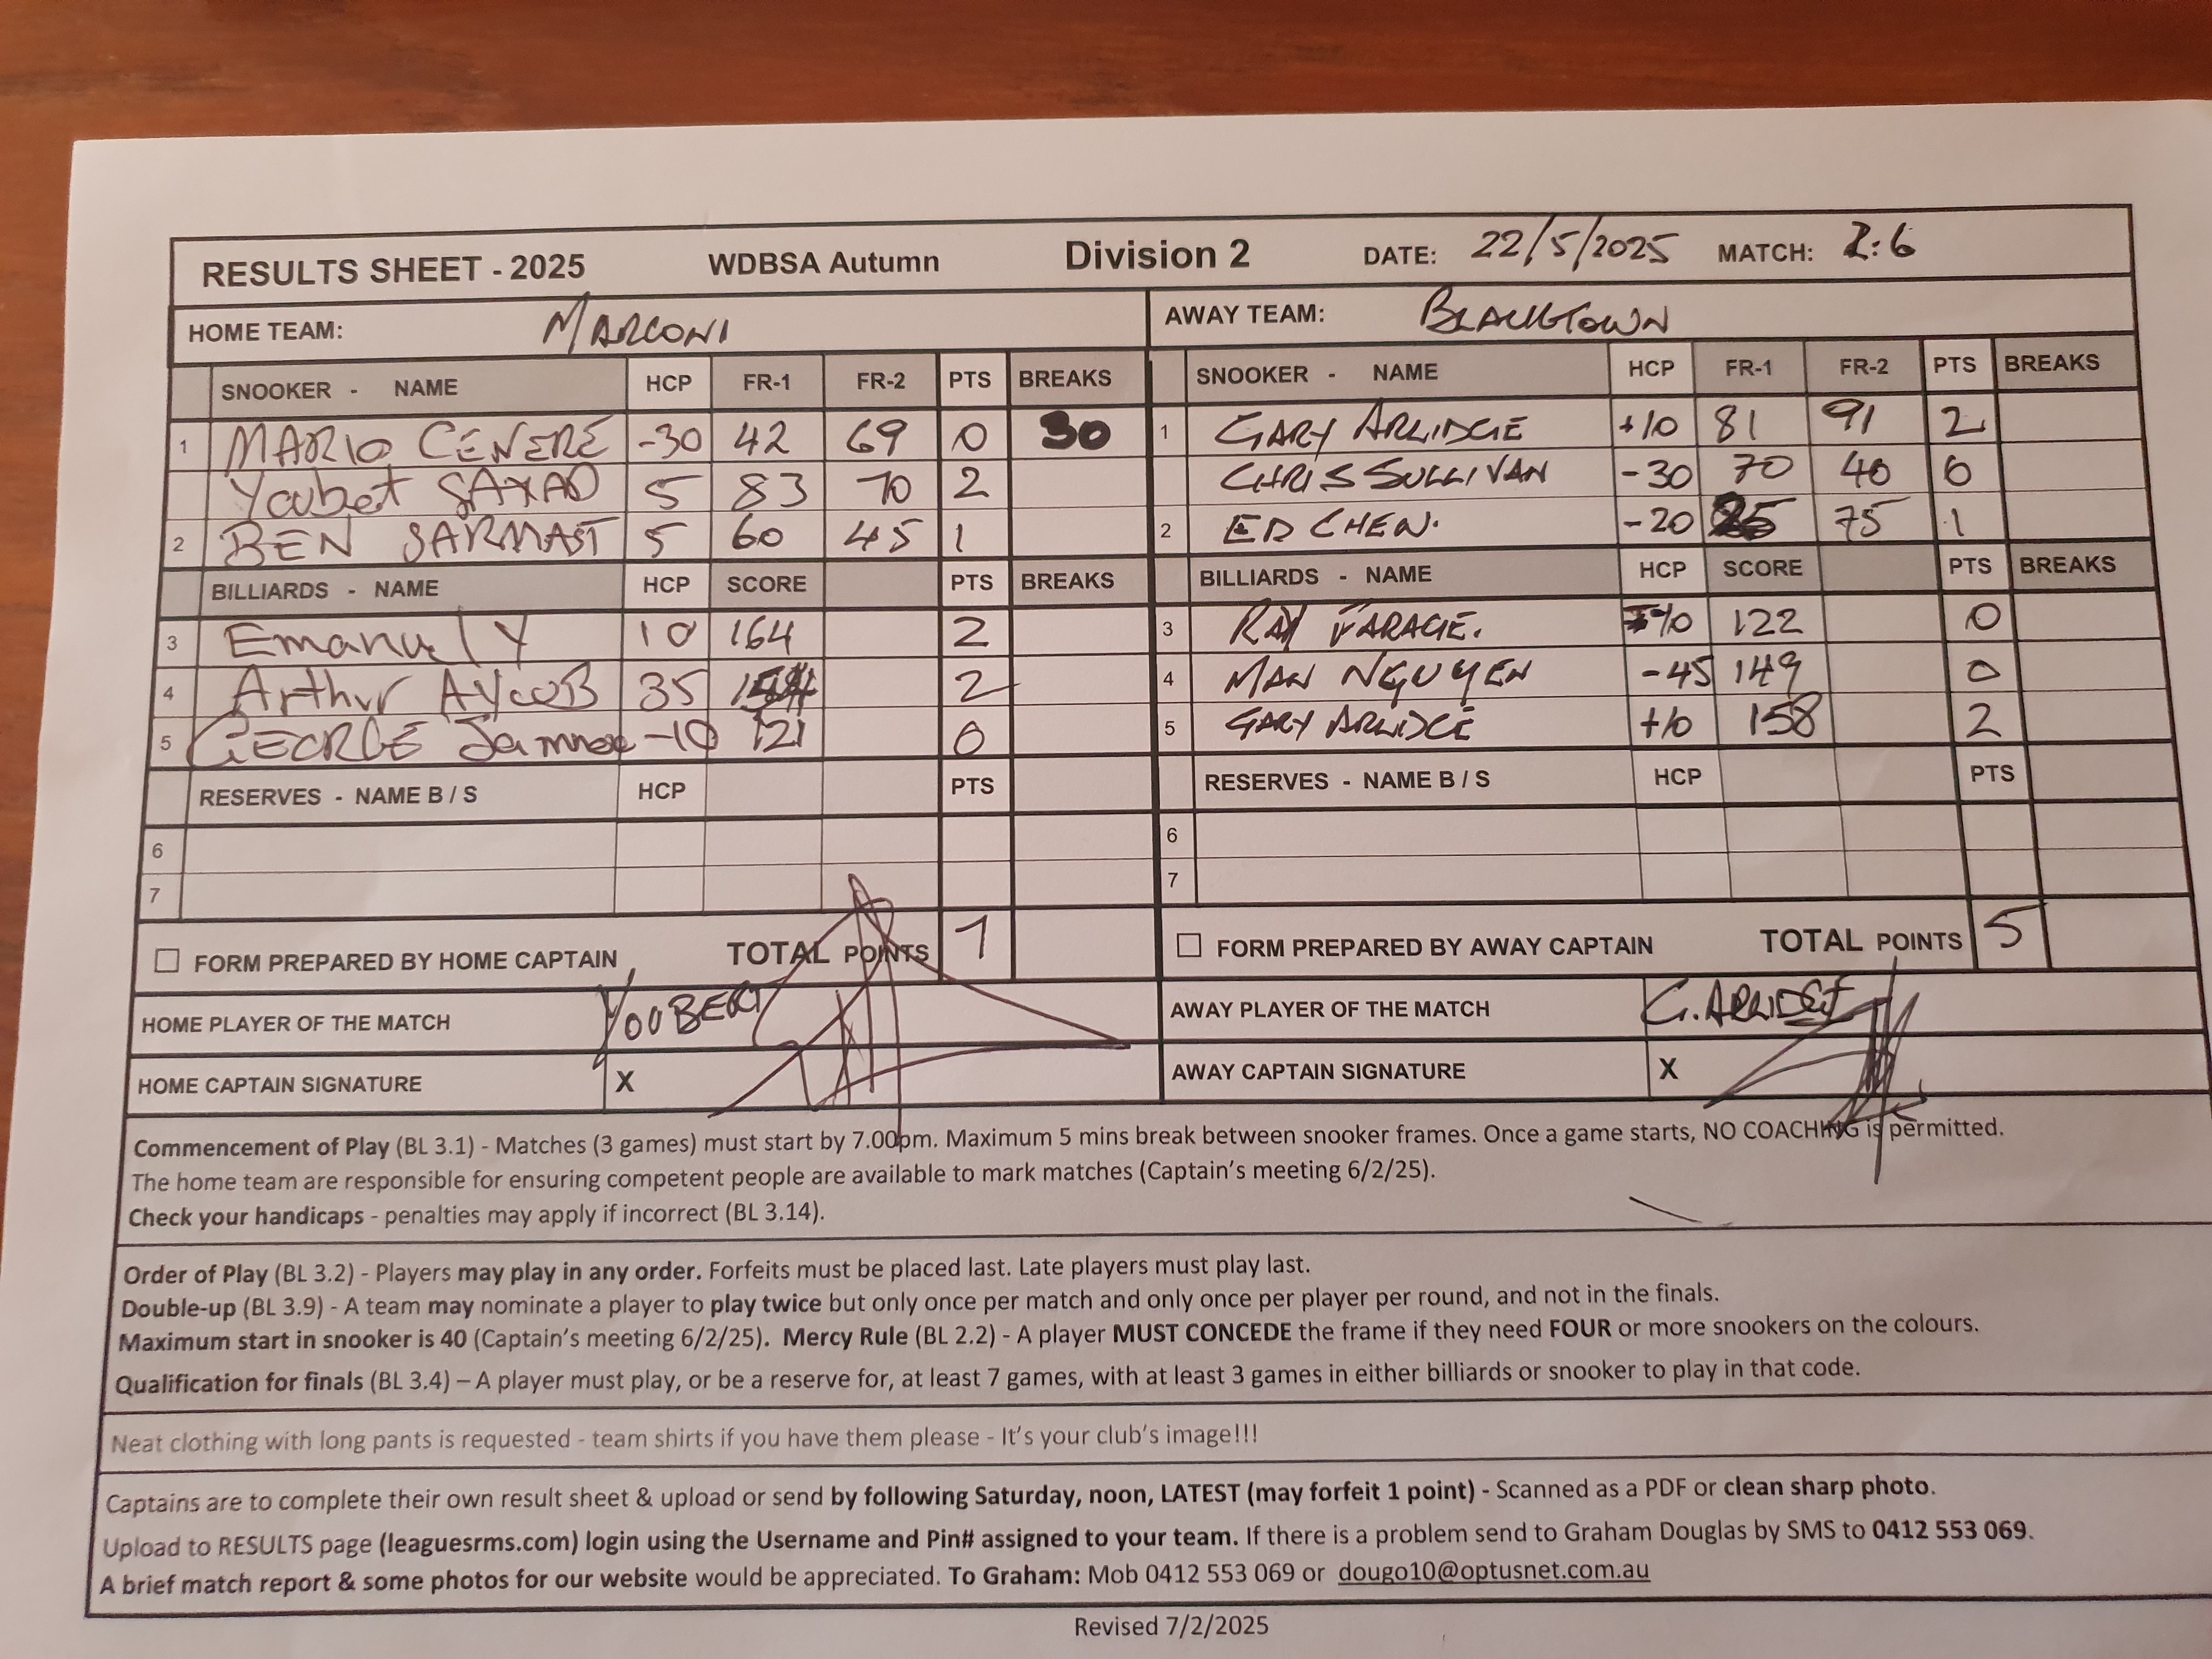 RESULTS SHEET - 2025 WDBSA Autumn Division 2 DATE: 22/5/2025 MATCH: 2:6
HOME TEAM: MARCONI AWAY TEAM: BLACKTOWN
SNOOKER - NAME HCP FR-1 FR-2 PTS BREAKS SNOOKER - NAME HCP FR-1 FR-2 PTS BREAKS
1 MARIO CENERE -30 42 69 0 30 1 GARY ARLIDGE +10 81 91 2
Youbet SAYAD 5 83 70 2 CHRIS SULLIVAN -30 70 40 0
2 BEN SARMAST 5 60 45 1 2 ED CHEN. -20 75 1
BILLIARDS - NAME HCP SCORE PTS BREAKS BILLIARDS - NAME HCP SCORE PTS BREAKS
3 Emanuel Y 10 164 2 3 RAY FARAGE. 122 0
4 Arthur AYCOB 35 2 4 MAN NGUYEN -45 149 0
5 GEORGE -10 121 0 5 GARY ARLIDGE +10 158 2
RESERVES - NAME B / S HCP PTS RESERVES - NAME B / S HCP PTS
6 6
7 7
FORM PREPARED BY HOME CAPTAIN TOTAL POINTS 7 FORM PREPARED BY AWAY CAPTAIN TOTAL POINTS 5
HOME PLAYER OF THE MATCH YOUBERT AWAY PLAYER OF THE MATCH G. ARLIDGE
HOME CAPTAIN SIGNATURE X AWAY CAPTAIN SIGNATURE X
Commencement of Play (BL 3.1) - Matches (3 games) must start by 7.00pm. Maximum 5 mins break between snooker frames. Once a game starts, NO COACHING is permitted.
The home team are responsible for ensuring competent people are available to mark matches (Captain's meeting 6/2/25).
Check your handicaps - penalties may apply if incorrect (BL 3.14).
Order of Play (BL 3.2) - Players may play in any order. Forfeits must be placed last. Late players must play last.
Double-up (BL 3.9) - A team may nominate a player to play twice but only once per match and only once per player per round, and not in the finals.
Maximum start in snooker is 40 (Captain's meeting 6/2/25). Mercy Rule (BL 2.2) - A player MUST CONCEDE the frame if they need FOUR or more snookers on the colours.
Qualification for finals (BL 3.4) – A player must play, or be a reserve for, at least 7 games, with at least 3 games in either billiards or snooker to play in that code.
Neat clothing with long pants is requested - team shirts if you have them please - It's your club's image!!!
Captains are to complete their own result sheet & upload or send by following Saturday, noon, LATEST (may forfeit 1 point) - Scanned as a PDF or clean sharp photo.
Upload to RESULTS page (leaguesrms.com) login using the Username and Pin# assigned to your team. If there is a problem send to Graham Douglas by SMS to 0412 553 069.
A brief match report & some photos for our website would be appreciated. To Graham: Mob 0412 553 069 or dougo10@optusnet.com.au
Revised 7/2/2025